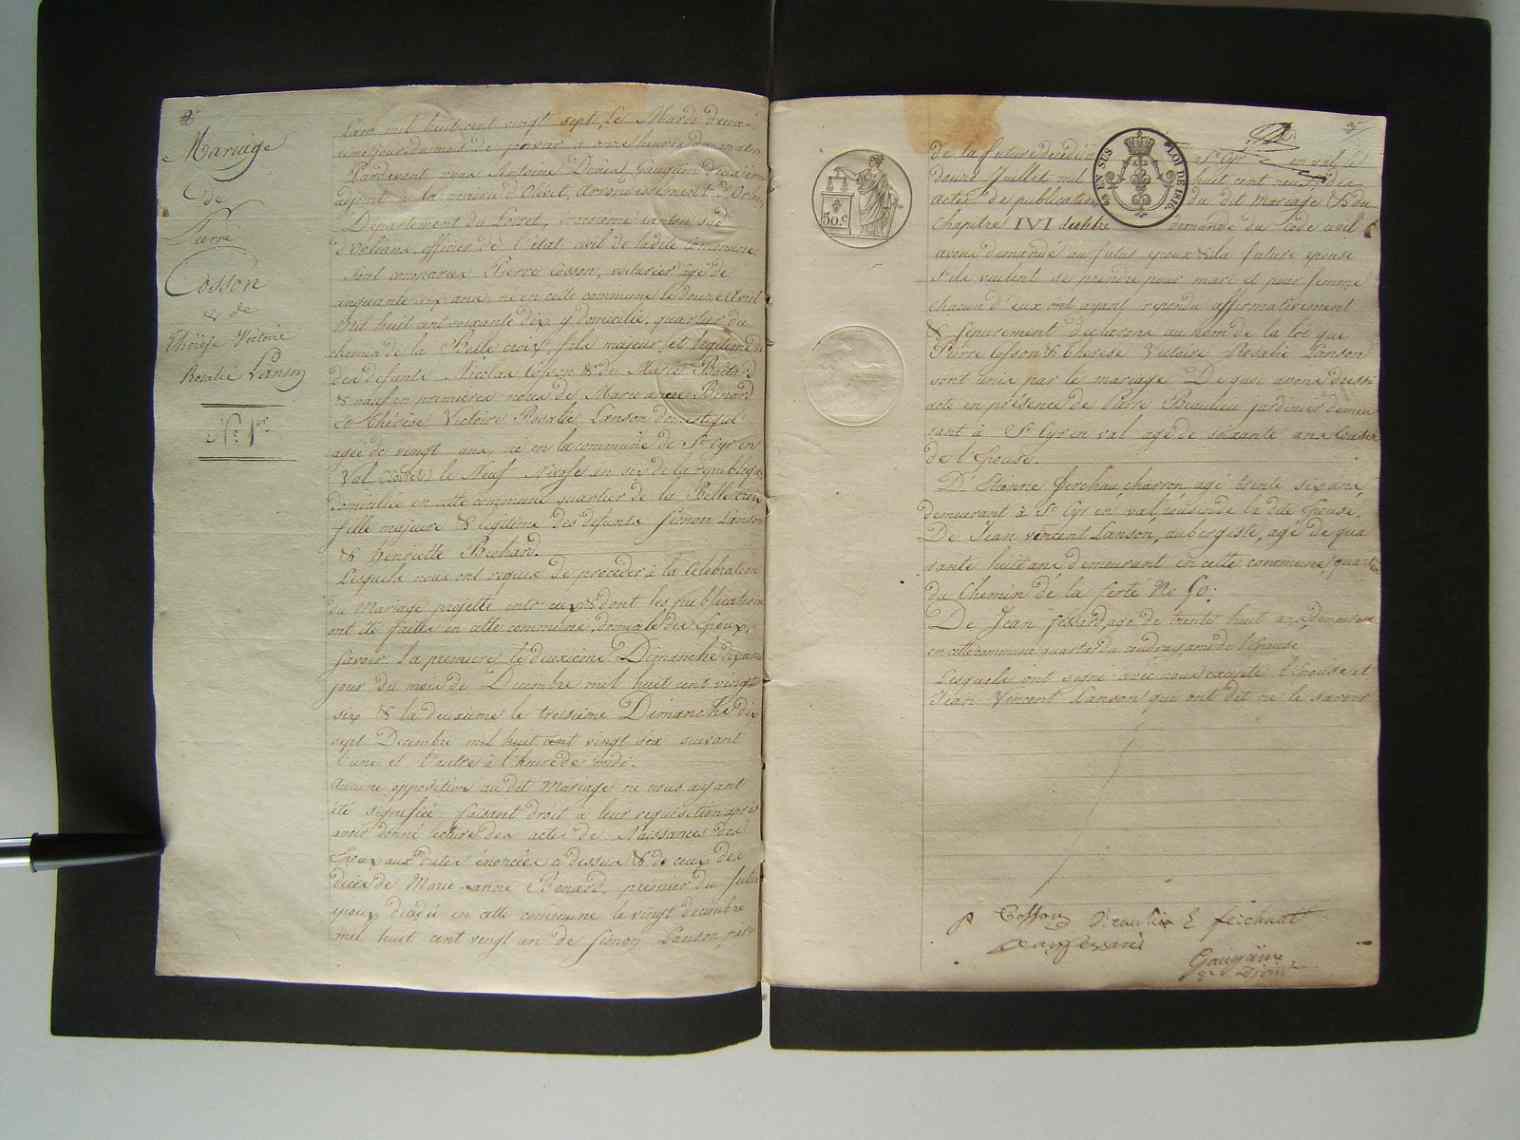 Mariage
de
Pierre
Cosson
& de
Thérèse Victoire
Rosalie Lanson
N.° 1.er
L'an mil huit cent vingt sept, le Mardi deux
ième jour du mois de janvier à onze heures du matin
Pardevant nous Antoine Denial Gaugain deuxième
adjoint de la mairie d'Olivet, Arrondissement d'Orléans
Département du Loiret, troisième canton sud
d'orléans, officier de l'état civil de ladite commune
sont comparus Pierre Cosson, voiturier âgé de
cinquante six ans, né en cette commune le douze Avril
mil huit cent soixante dix y domicilié, quartier du
chemin de la Belle croix, fils majeur et légitime
des défunts Nicolas Cosson & de Marie
& veuf en premières noces de Marie anne Bénard
Et Thérèse Victoire Rosalie Lanson domestique
agée de vingt ans, né en la commune de St Cyr en
Val le Neuf Nivose en six de la république
domiciliée en cette commune quartier de la Belle croix
fille majeure & légitime des défunts Simon Lanson
& henriette Bechard.
Lesquels nous ont requis de procéder à la Célébration
du Mariage projetté entre eux & dont les publications
ont été faites en cette commune, domicile des Epoux,
Savoir. La première le deuxième Dimanche dixième
jour du mois de Decembre mil huit cent vingt
six & la deuxième le troisième Dimanche dix
sept Decembre mil huit cent vingt six suivant
l'une et l'autre à l'heure de midi.
Aucune opposition au dit Mariage ne nous ayant
été signifiée, faisant droit à leur requisition après
avoir donné lecture des actes de Naissances des
Epoux aux dates énoncées ci dessus & de ceux des
décès de Marie anne Benard, premier du futur
époux décédé en cette commune le vingt decembre
mil huit cent vingt un de Simon Lanson père
de la future décédé à St Cyr en val le
douze Juillet mil huit cent neuf
actes de publication du dit Mariage & du
chapitre IVI du titre du Code civil
avons demandé au futur époux & la future épouse
s'ils veulent se prendre pour mari et pour femme
chacun d'eux ont ayant répondu affirmativement
& séparement déclarons au nom de la loi que
Pierre Cosson & Thérèse Victoire Rosalie Lanson
sont unis par le mariage De quoi avons dressé
acte en présence de Paire Beaulieu jardinier demeu
rant à St Cyr en val agé de soixante ans
de l'Epouse.
D'Etienne ferchau charron agé trente six ans
demeurant à St Cyr en val, cousin de la dite Epouse.
De Jean vincent Lanson, aubergiste, agé de qua
rante huit ans demeurant en cette commune quartier
du Chemin de la ferté No 50.
De Jean fessard agé de trente huit ans demeurant
en cette commune quartier du coudray ami de l'épouse
Lesquels ont signé avec nous excepté l'épouse et
Jean Vincent Lanson qui ont dit ne le savoir
50.c
EN SUS LOI DE 1816.
P Cosson Beaulieu E feichaut
Jean fessard
Gaugain